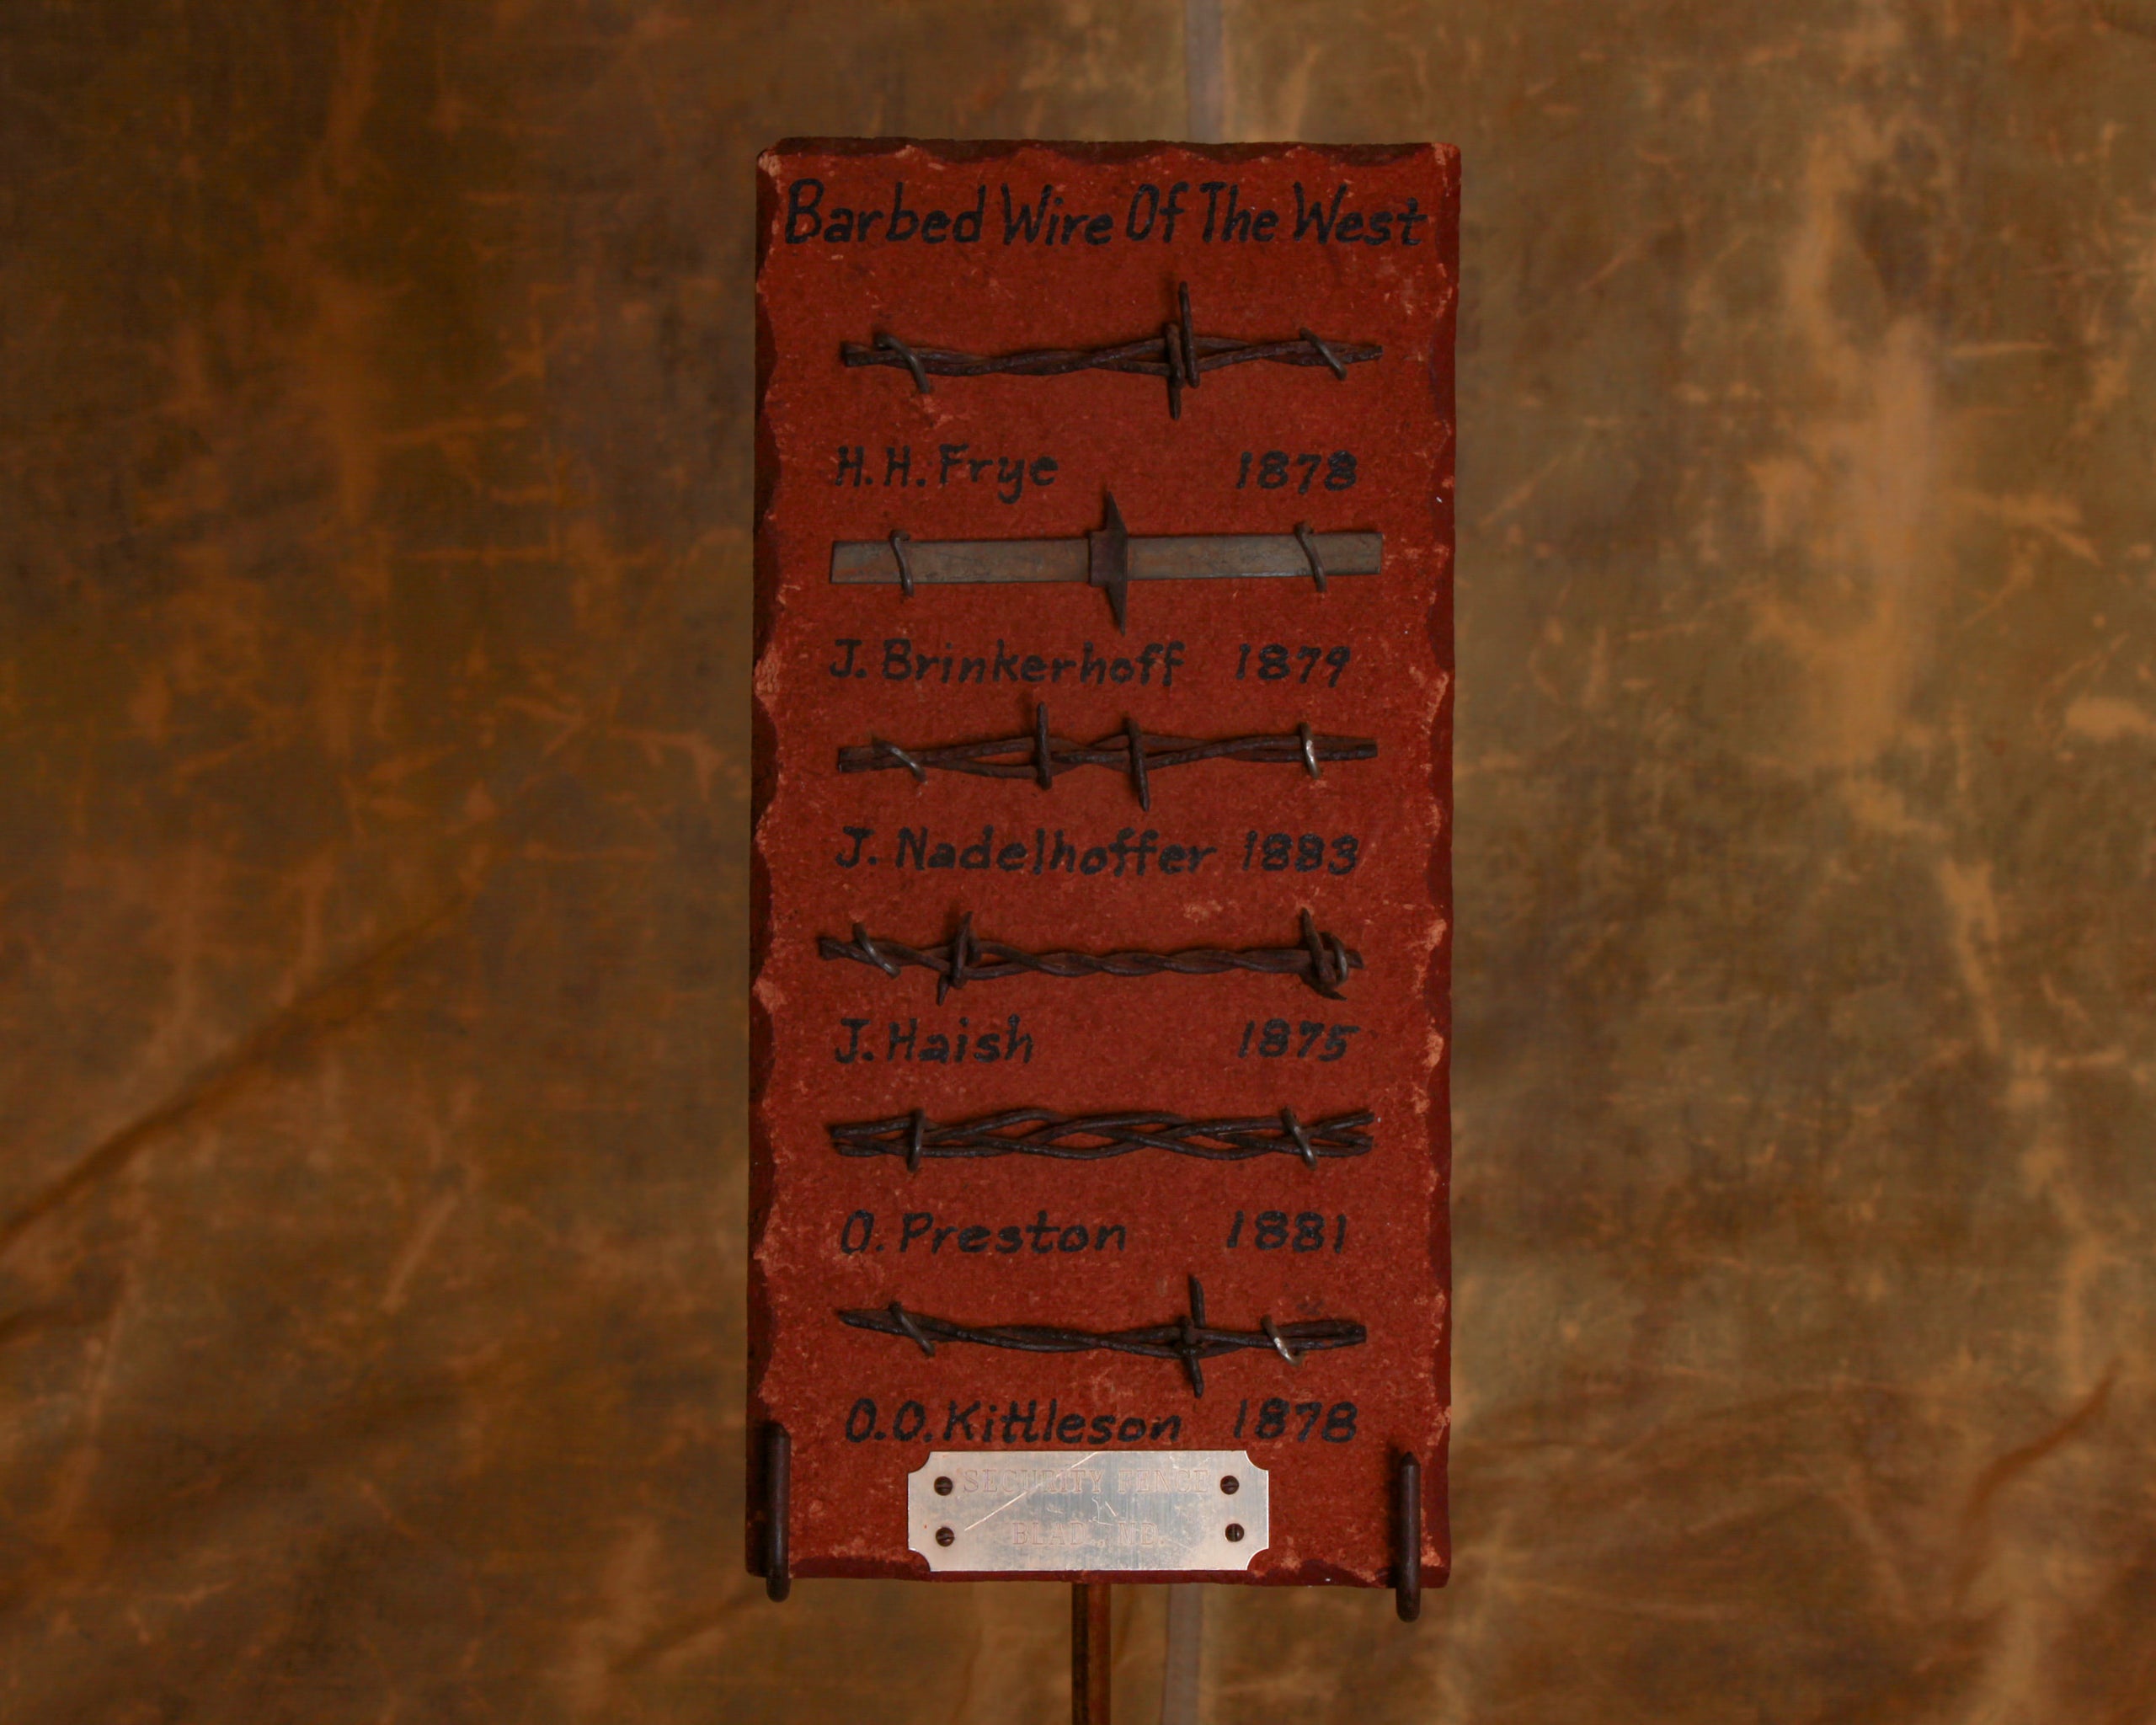 Barbed Wire Of The West
H.H. Frye 1878
J. Brinkerhoff 1879
J. Nadelhoffer 1883
J. Haish 1875
O. Preston 1881
O.O. Kittleson 1878
SECURITY FENCE
BLAD., NE.